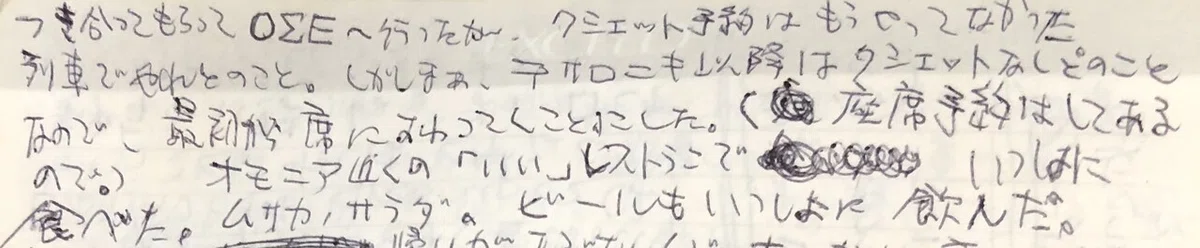 つき合ってもらってΟΣΕへ行ったが、クシェット予約はもうやってなかった
列車でやれとのこと。しかしまぁ、テサロニキ以降はクシェットなしとのこと
なので、最初から席にすわってくことにした。(座席予約はしてある
ので。) オモニア近くの「いい」レストランで いっしょに
食べた。ムサカ、サラダ。ビールもいっしょに飲んだ。